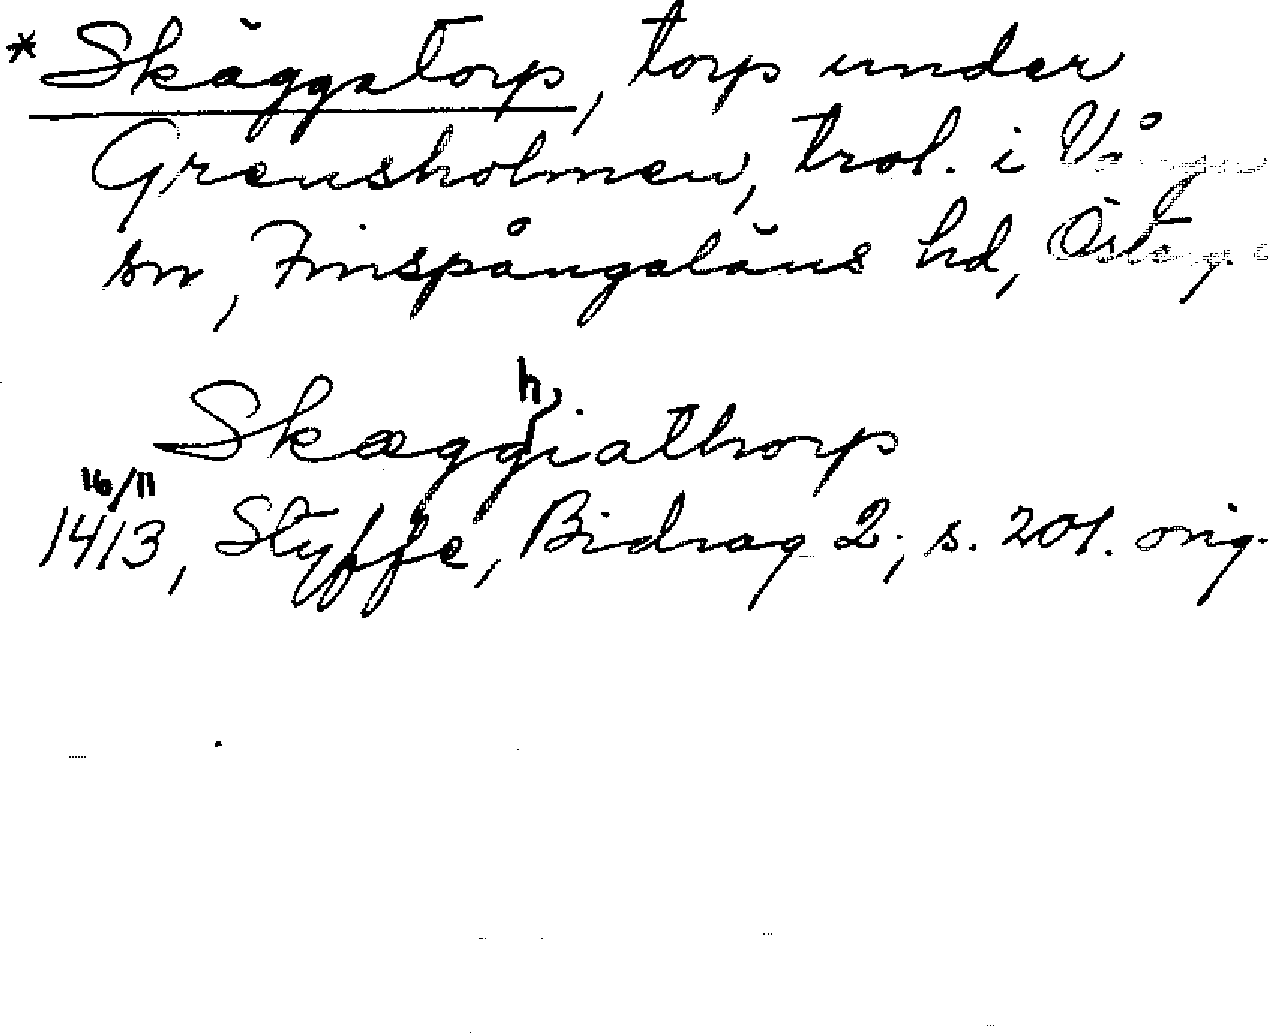 *Skäggstorp, torp under
Grensholmen, trol. i Vånga
sn, Finspångaläns hd, Österg.
Skægghiathorp
16/11
1413, Styffe, Bidrag 2, s. 201. orig.